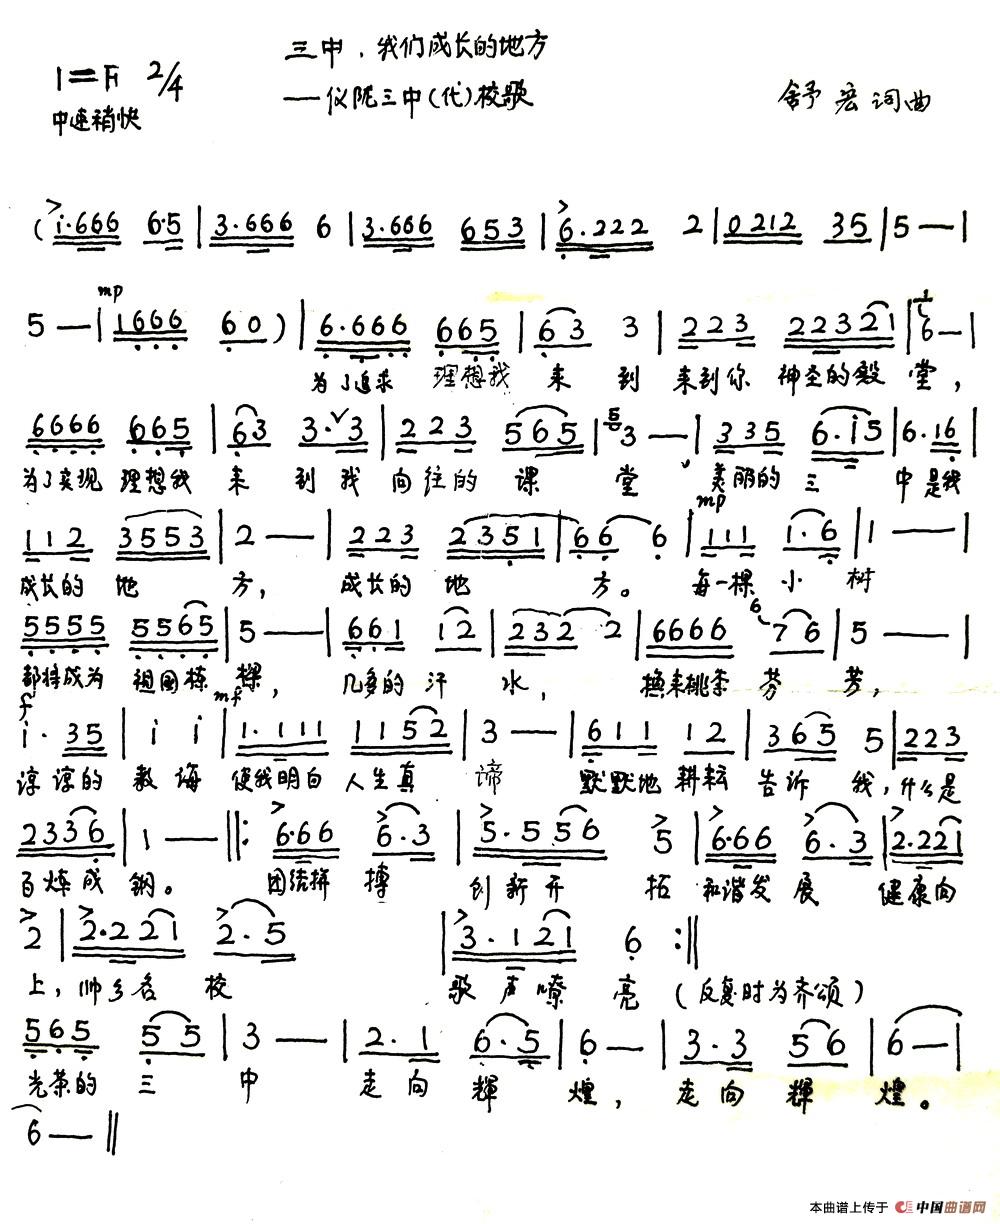 三中，我们成长的地方
1=F 2/4
——仪陇三中(代)校歌
舒宏词曲
中速稍快
(i·666 6·5|3·666 6|3·666 653|6·222 2|0212 35|5—|
mp
5—|1666 60)|6·666 665|63 3|223 22321|6—|
为了追求 理想我 来 到 来到你 神圣的殿 堂，
6666 665|63 3·3|223 565|3—|335 6·i5|6·16|
为了实现 理想我 来 到我 向往的 课 堂 美丽的 三 中是我
mp
112 3553|2—|223 2351|66 6|111 1·6|1—|
成长的 地 方， 成长的 地 方。 每一棵 小 树
5555 5565|5—|661 12|232 2|6666 76|5—|
都将成为 祖国栋 樑， 几多的 汗 水， 换来桃李 芬 芳，
f mf
i· 35|i i|1·111 1152|3—|611 12|365 5|223|
谆谆的 教诲 使我明白 人生真 谛 默默地 耕耘 告诉 我，什么是
2336|1—‖:6·66 6·3|5·556 5|6·66 6·3|2·221|
百炼成 钢。 团结拼 搏 创新开 拓 和谐发 展 健康向
2|2·221 2·5 |3·121 6:‖
上，帅乡名 校 歌声嘹 亮 (反复时为齐颂)
565 55|3—|2·1 6·5|6—|3·3 56|6—|
光荣的 三 中 走向 辉 煌， 走向 辉 煌。
6—‖
本曲谱上传于 中国曲谱网